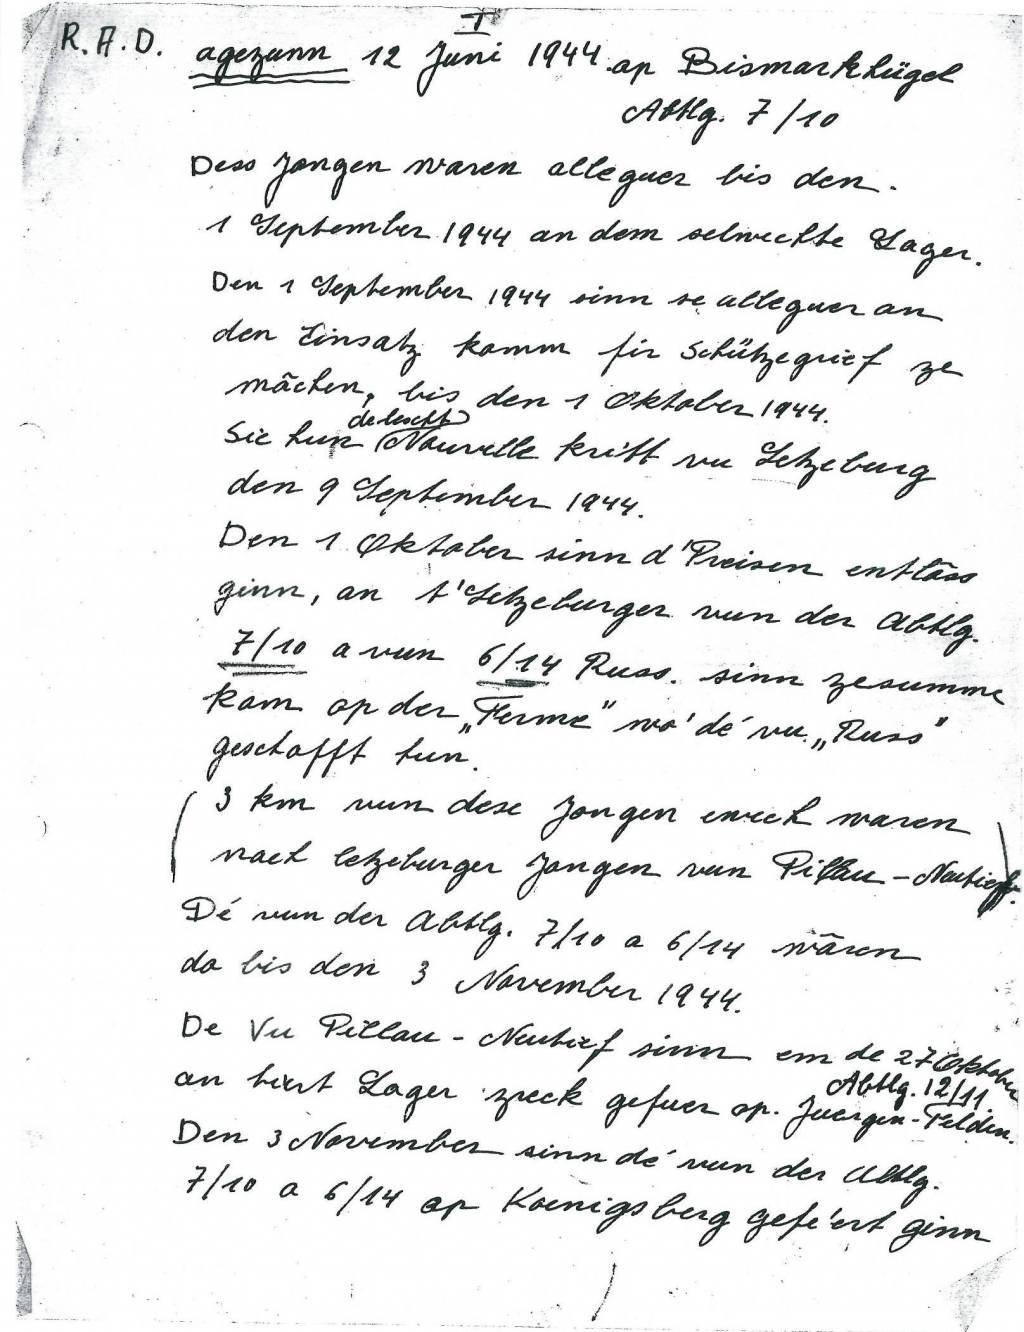 I
R.A.D. agezunn 12 Juni 1944 op Bismarkhügel
Abtlg. 7/10
Dess Jongen waren alleguer bis den.
1 September 1944 an dem selwechte Lager.
Den 1 September 1944 sinn se alleguer an
den Einsatz komm fir Schützegrief ze
mächen, bis den 1 Oktober 1944.
de lescht
Sie hun Nouvelle kritt vu Letzeburg
den 9 September 1944.
Den 1 Oktober sinn d'Preisen entlāss
ginn, an t'Letzeburger vun der Abtlg.
7/10 a vun 6/14 Russ. sinn zesumme
kom op der „Ferme" wo' dé vu „Russ"
geschafft hun.
(3 km vun dese Jongen ewech waren
nach letzeburger Jongen vun Pillau-Neutief).
Dé vun der Abtlg. 7/10 a 6/14 wāren
do bis den 3 November 1944.
De Vu Pillau-Neutief sinn em de 27 Oktober
an hirt Lager zreck gefuer op. Juergen-Felden.
Abtlg. 12/11
Den 3 November sinn dé vun der Abtlg.
7/10 a 6/14 op Koenigsberg gefé'ert ginn